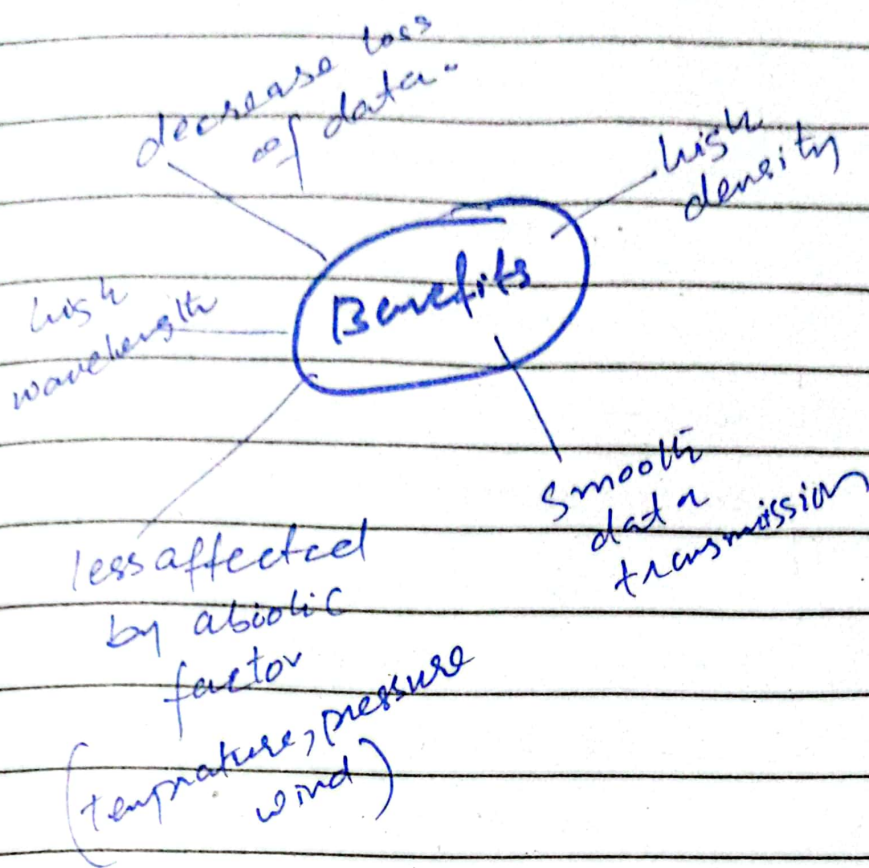 decrease loss
of data..
high
density
Benefits
high
wavelength
smooth
data
transmission
less affected
by abiotic
factor
(temprature, pressure
wind)